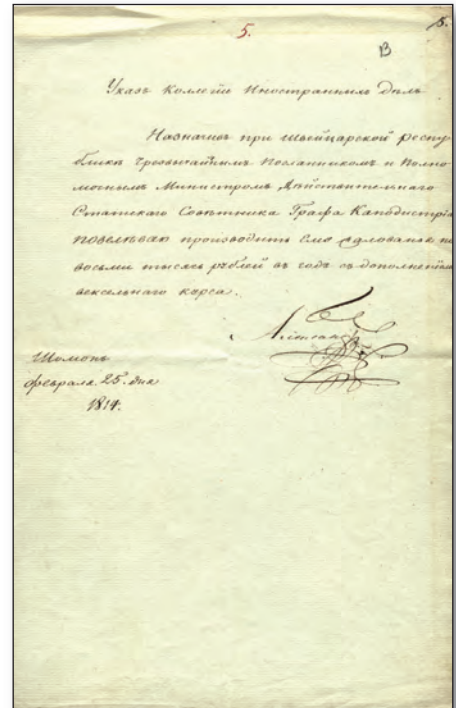 5.
5.
13
Указъ Коллегіи Иностранныхъ Дѣлъ
Назначивъ при Швейцарской респу
блики Чрезвычайнымъ Посланникомъ и Полно
мочнымъ Министромъ Дѣйствительнаго
Статскаго Совѣтника Графа Каподистрію
повелѣваю производить Ему жалованья по
восьми тысячь рублей въ годъ съ дополненіемъ
вексельнаго курса.
Александръ
Шомонъ
февраля 25. дня
1814.